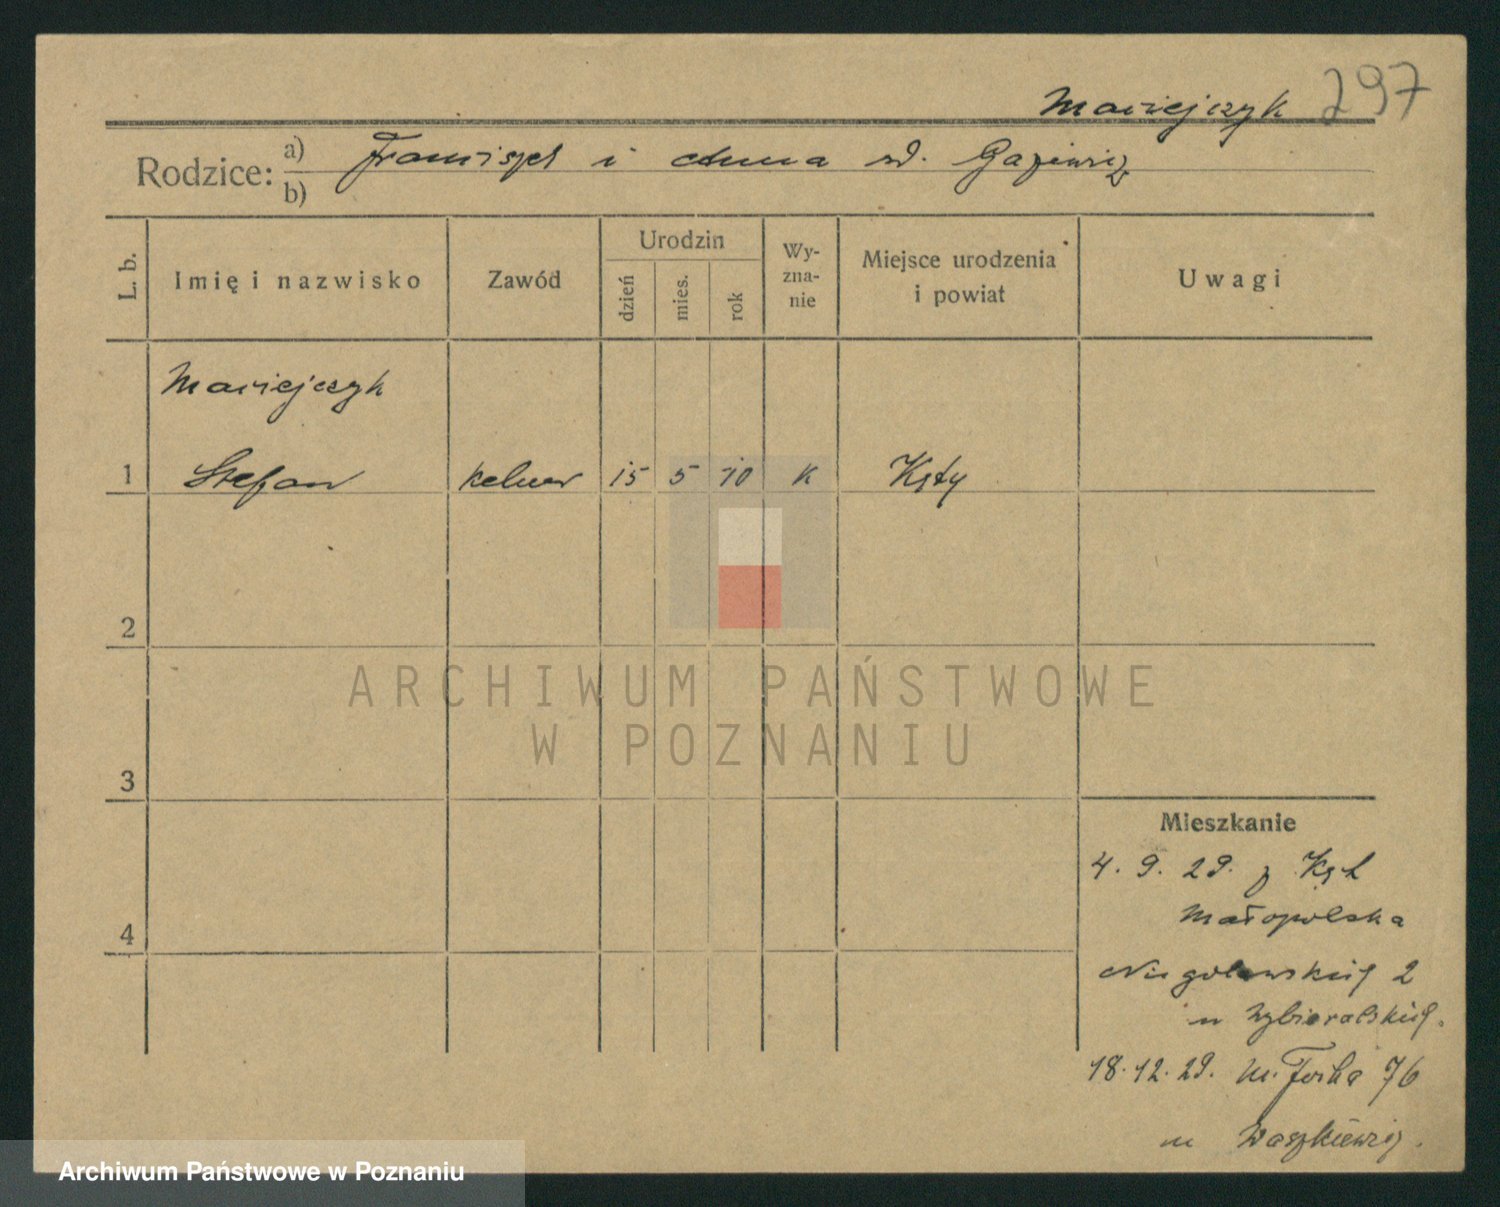 Maciejczyk 297
Rodzice: a) Franciszek i Anna zd. Gaziewicz
b)
L. b.
Imię i nazwisko
Zawód
Urodzin
dzień
mies.
rok
Wy-
zna-
nie
Miejsce urodzenia
i powiat
Uwagi
Maciejczyk
1 Stefan kelner 15 5 10 K Kęty
2
ARCHIWUM PAŃSTWOWE
W POZNANIU
3
Mieszkanie
4. 9. 29. z Kęt
Małopolska
4
Niegolewskich 2
u Wybieralskich.
18.12.29. M. Focha 76
u Waszkiewicz.
Archiwum Państwowe w Poznaniu